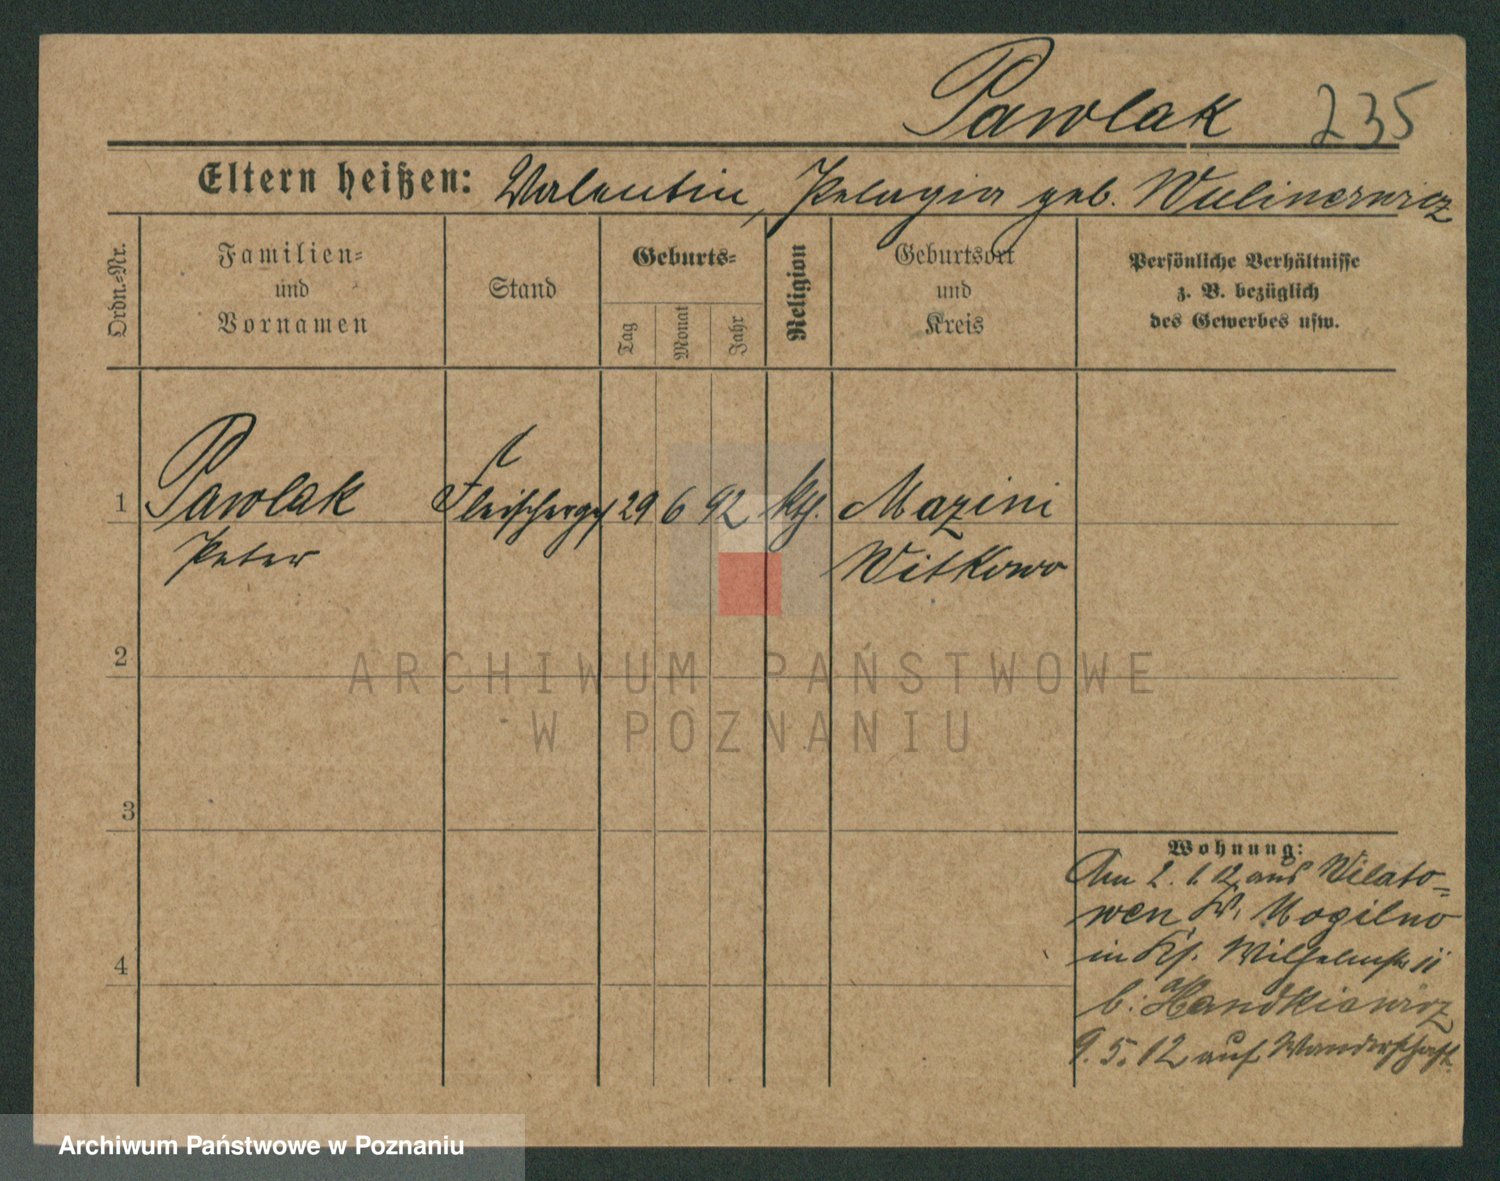 Pawlak 235
Eltern heißen: Valentin, Pelagia geb. Wulinerwicz
Ordn.-Nr.
Familien-
und
Vornamen
Stand
Geburts-
Tag
Monat
Jahr
Religion
Geburtsort
und
Kreis
Persönliche Verhältnisse
z. B. bezüglich
des Gewerbes usw.
1 Pawlak Fleischerges 29 6 92 kth. Mazini
Peter Witkowo
2
3
4
Wohnung:
Am 2. 1. 12 aus Wilato-
wen Kr. Mogilno
in Wilhelmstr 11
b. Handkiewicz
9. 5. 12 auf Wanderschaft.
ARCHIWUM PAŃSTWOWE
W POZNANIU
Archiwum Państwowe w Poznaniu